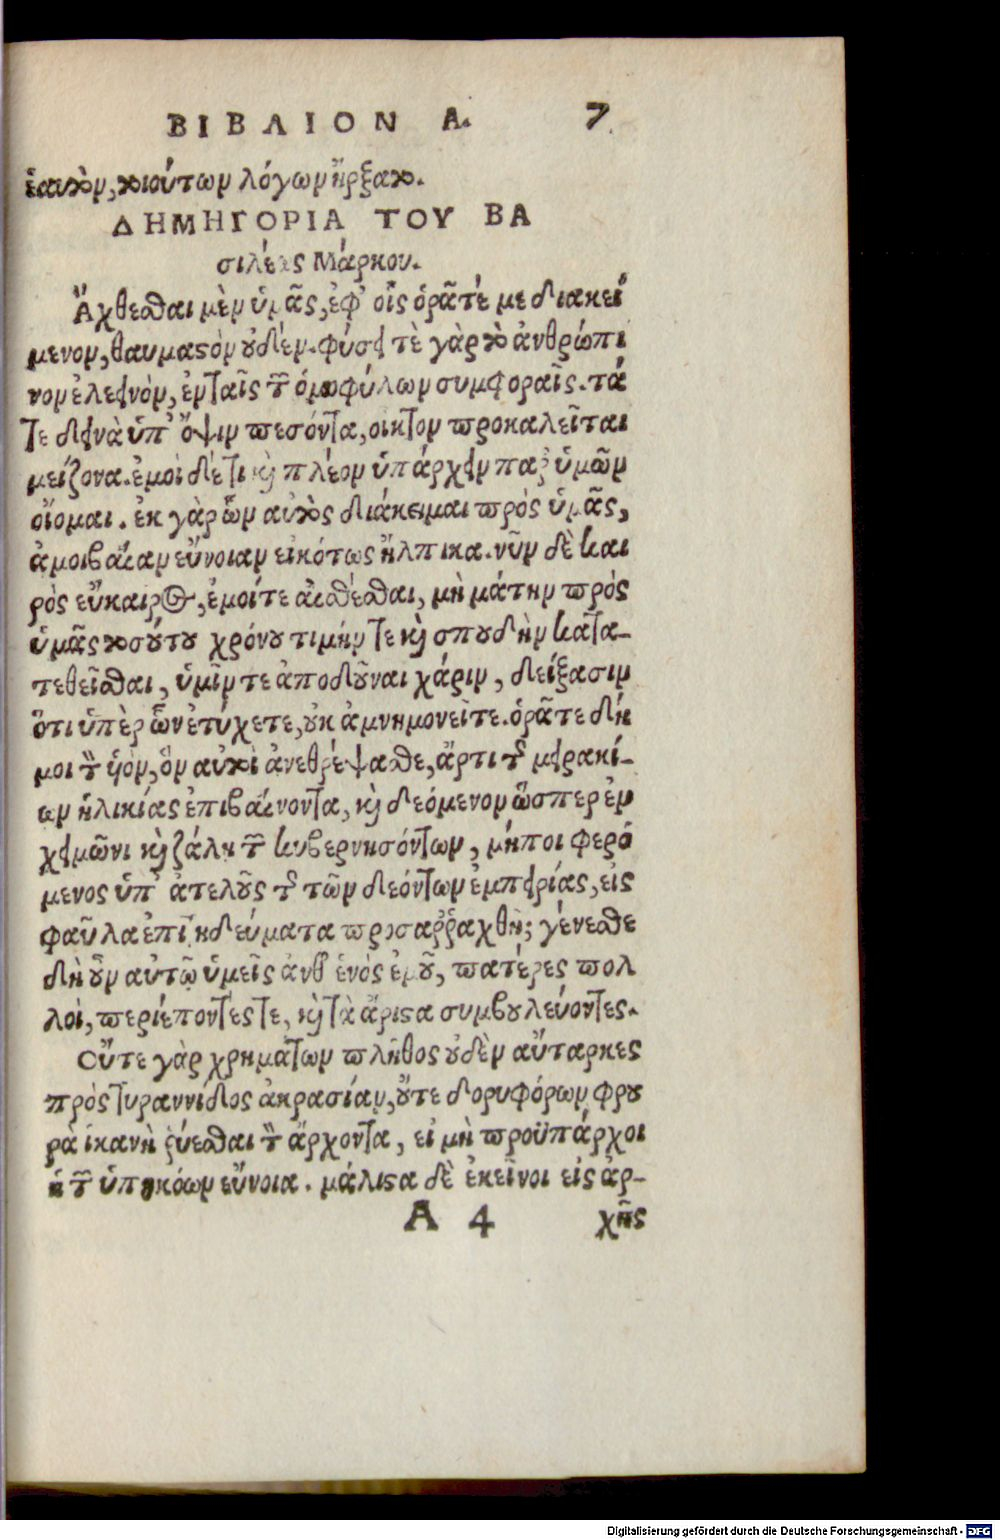 ΒΙΒΛΙΟΝ Α. 7
ἑαυτὸν, τοιούτων λόγων ἤρξατο.
ΔΗΜΗΓΟΡΙΑ ΤΟΥ ΒΑ
σιλέως Μάρκου.
Ἄχθεσθαι μὲν ὑμᾶς, ἐφ' οἷς ὁρᾶτέ με διακεί
μενον, θαυμαστὸν οὐδέν. φύσει τὲ γὰρ τὸ ἀνθρώπι
νον ἐλεεινὸν, ἐν ταῖς τῶν ὁμοφύλων συμφοραῖς. τά
τε δεινὰ ὑπ' ὄψιν πεσόντα, οἰκτον προκαλεῖται
μείζονα. ἐμοὶ δέ τι καὶ πλέον ὑπάρχειν παρ' ὑμῶν
οἴομαι. ἐκ γὰρ ὧν αὐτὸς διάκειμαι πρὸς ὑμᾶς,
ἀμοιβαίαν εὔνοιαν εἰκότως ἤλπικα. νῦν δὲ και
ρὸς εὔκαιρος, ἐμοίτε αἰσθέσθαι, μὴ μάτην πρὸς
ὑμᾶς τοσούτου χρόνου τιμήν τε καὶ σπουδὴν κατα-
τεθεῖσθαι, ὑμῖν τε ἀποδοῦναι χάριν, δείξασιν
ὅτι ὑπὲρ ὧν ἐτύχετε, οὐκ ἀμνημονεῖτε. ὁρᾶτε δή
μοι τὸν υἱὸν, ὃν αὐτοὶ ἀνεθρέψασθε, ἄρτι τῆς μειρακί-
ων ἡλικίας ἐπιβαίνοντα, καὶ δεόμενον ὥσπερ ἐν
χειμῶνι καὶ ζάλῃ τῶν κυβερνησόντων, μήποι φερό
μενος ὑπ' ἀτελοῦς τῆς τῶν δεόντων ἐμπειρίας, εἰς
φαῦλα ἐπιτηδεύματα προσαῤῥαχθῇ; γένεσθε
δὴ οὖν αὐτῷ ὑμεῖς ἀνθ' ἑνὸς ἐμοῦ, πατέρες πολ
λοὶ, περιέποντές τε, καὶ τὰ ἄριστα συμβουλεύοντες.
Οὔτε γὰρ χρημάτων πλῆθος οὐδὲν αὔταρκες
πρὸς τυραννίδος ἀκρασίαν, οὔτε δορυφόρων φρου
ρὰ ἱκανὴ ῥύεσθαι τὸν ἄρχοντα, εἰ μὴ προϋπάρχοι
ἡ τῶν ὑπηκόων εὔνοια. μάλιστα δὲ ἐκεῖνοι εἰς ἀρ-
Α 4 χῆς
Digitalisierung gefördert durch die Deutsche Forschungsgemeinschaft - DFG